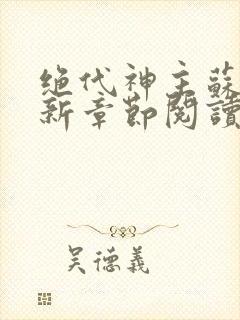 绝代神主蘇
新章節閱讀
吴德義